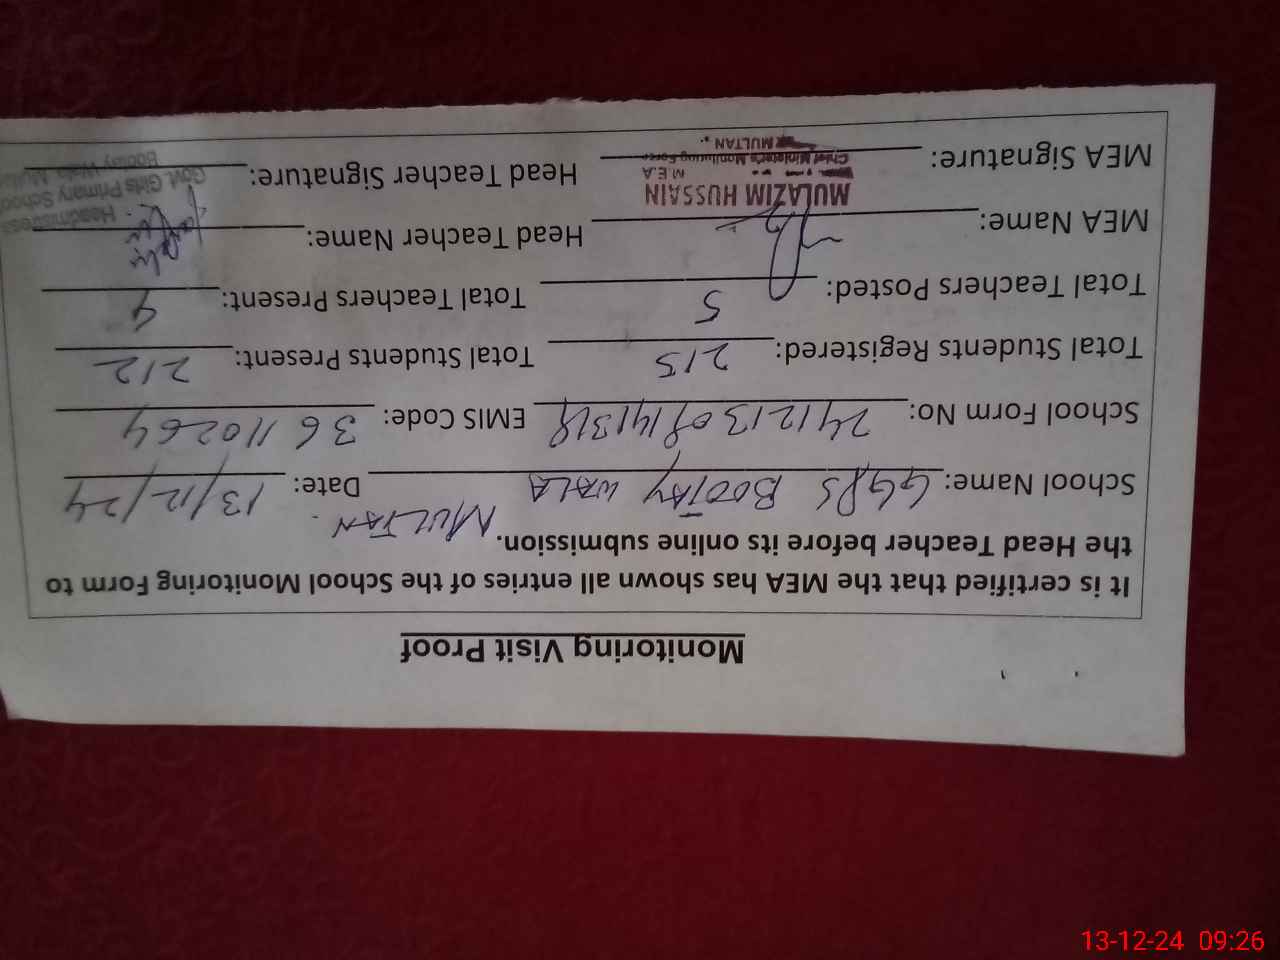 Monitoring Visit Proof
It is certified that the MEA has shown all entries of the School Monitoring Form to
the Head Teacher before its online submission.
School Name: GGPS BOOTAY WALA MULTAN. Date: 13/12/24
School Form No: EMIS Code: 36110264
Total Students Registered: 215 Total Students Present: 212
Total Teachers Posted: 5 Total Teachers Present: 4
MEA Name: Head Teacher Name:
MULAZIM HUSSAIN
M.E.A
Chief Minister's Monitoring Force
MULTAN
MEA Signature: Head Teacher Signature:
Headmistress
Govt. Girls Primary School
Bootay Wala Multan
13-12-24 09:26